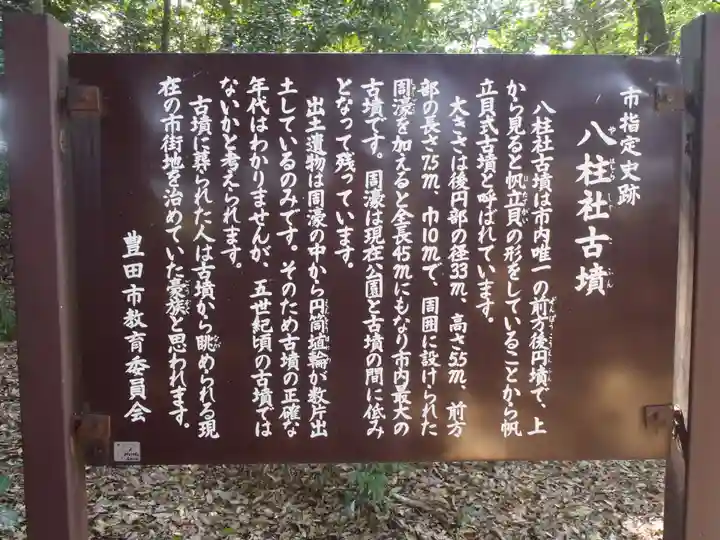 市指定史跡
八柱社古墳
八柱社古墳は市内唯一の前方後円墳で、上
から見ると帆立貝の形をしていることから帆
立貝式古墳と呼ばれています。
大きさは後円部の径33m、高さ5.5m、前方
部の長さ7.5m、巾10mで、周囲に設けられた
周濠を加えると全長45mにもなり市内最大の
古墳です。周濠は現在公園と古墳の間に低み
となって残っています。
出土遺物は周濠の中から円筒埴輪が数片出
土しているのみです。そのため古墳の正確な
年代はわかりませんが、五世紀頃の古墳では
ないかと考えられます。
古墳に葬られた人は古墳から眺められる現
在の市街地を治めていた豪族と思われます。
豊田市教育委員会